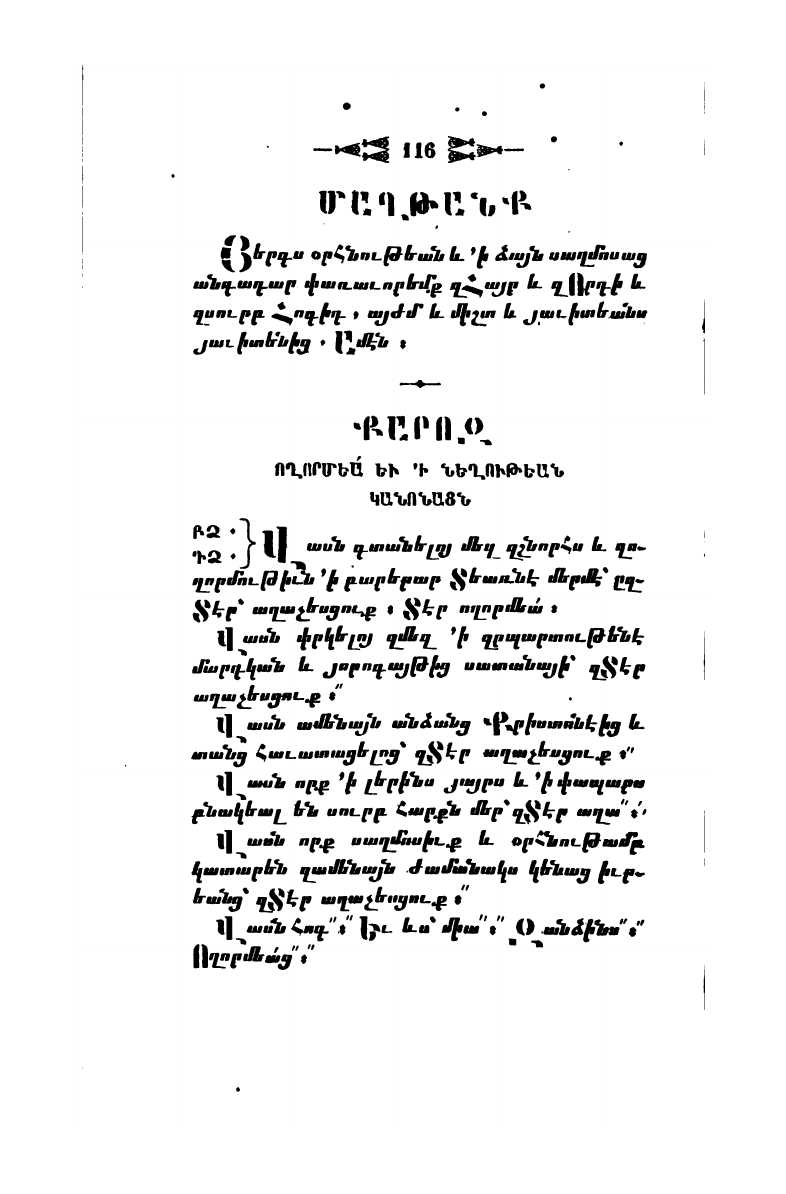 116
ՄԱՂԹԱՆՔ
Յերգս օրհնութեան և ՚ի ձայն սաղմոսաց
անգադար փառաւորեմք զՀայր և զՈրդի և
զսուրբ Հոգիդ, այժմ և միշտ և յաւիտեանս
յաւիտենից. Ամէն ։
ՔԱՐՈԶ
ՈՂՈՐՄԵԱ՛ ԵՒ ՚Ի ՆԵՂՈՒԹԵԱՆ
ԿԱՆՈՆԱՑՆ
ԲՁ .
ԴՁ .
Վասն գտանելոյ մեզ զշնորհս և զո-
ղորմութիւն ՚ի բարերար Տեառնէ մերմէ՝ ըզ-
Տէր՝ աղաչեսցուք ։ Տէր ողորմեա՛ ։
Վասն փրկելոյ զմեզ ՚ի զրպարտութենէ
մարդկան և յորոգայթից սատանայի՝ զՏէր
աղաչեսցուք ։՞
Վասն ամենայն անձանց Քրիստոնէից և
տանց հաւատացելոց՝ զՏէր աղաչեսցուք ։՞
Վասն որք ՚ի լերինս յայրս և ՚ի փապարս
բնակեալ են սուրբ հարքն մեր՝ զՏէր աղա՞ ։՞
Վասն որք սաղմոսիւք և օրհնութամբ
կատարեն զամենայն ժամանակս կենաց իւր-
եանց՝ զՏէր աղաչեսցուք ։՞
Վասն հոգ՞ ։՞ Եւ ևս՝ միա՞ ։՞ Զանձինս՞ ։՞
Ողորմեա՛ց՞ ։՞